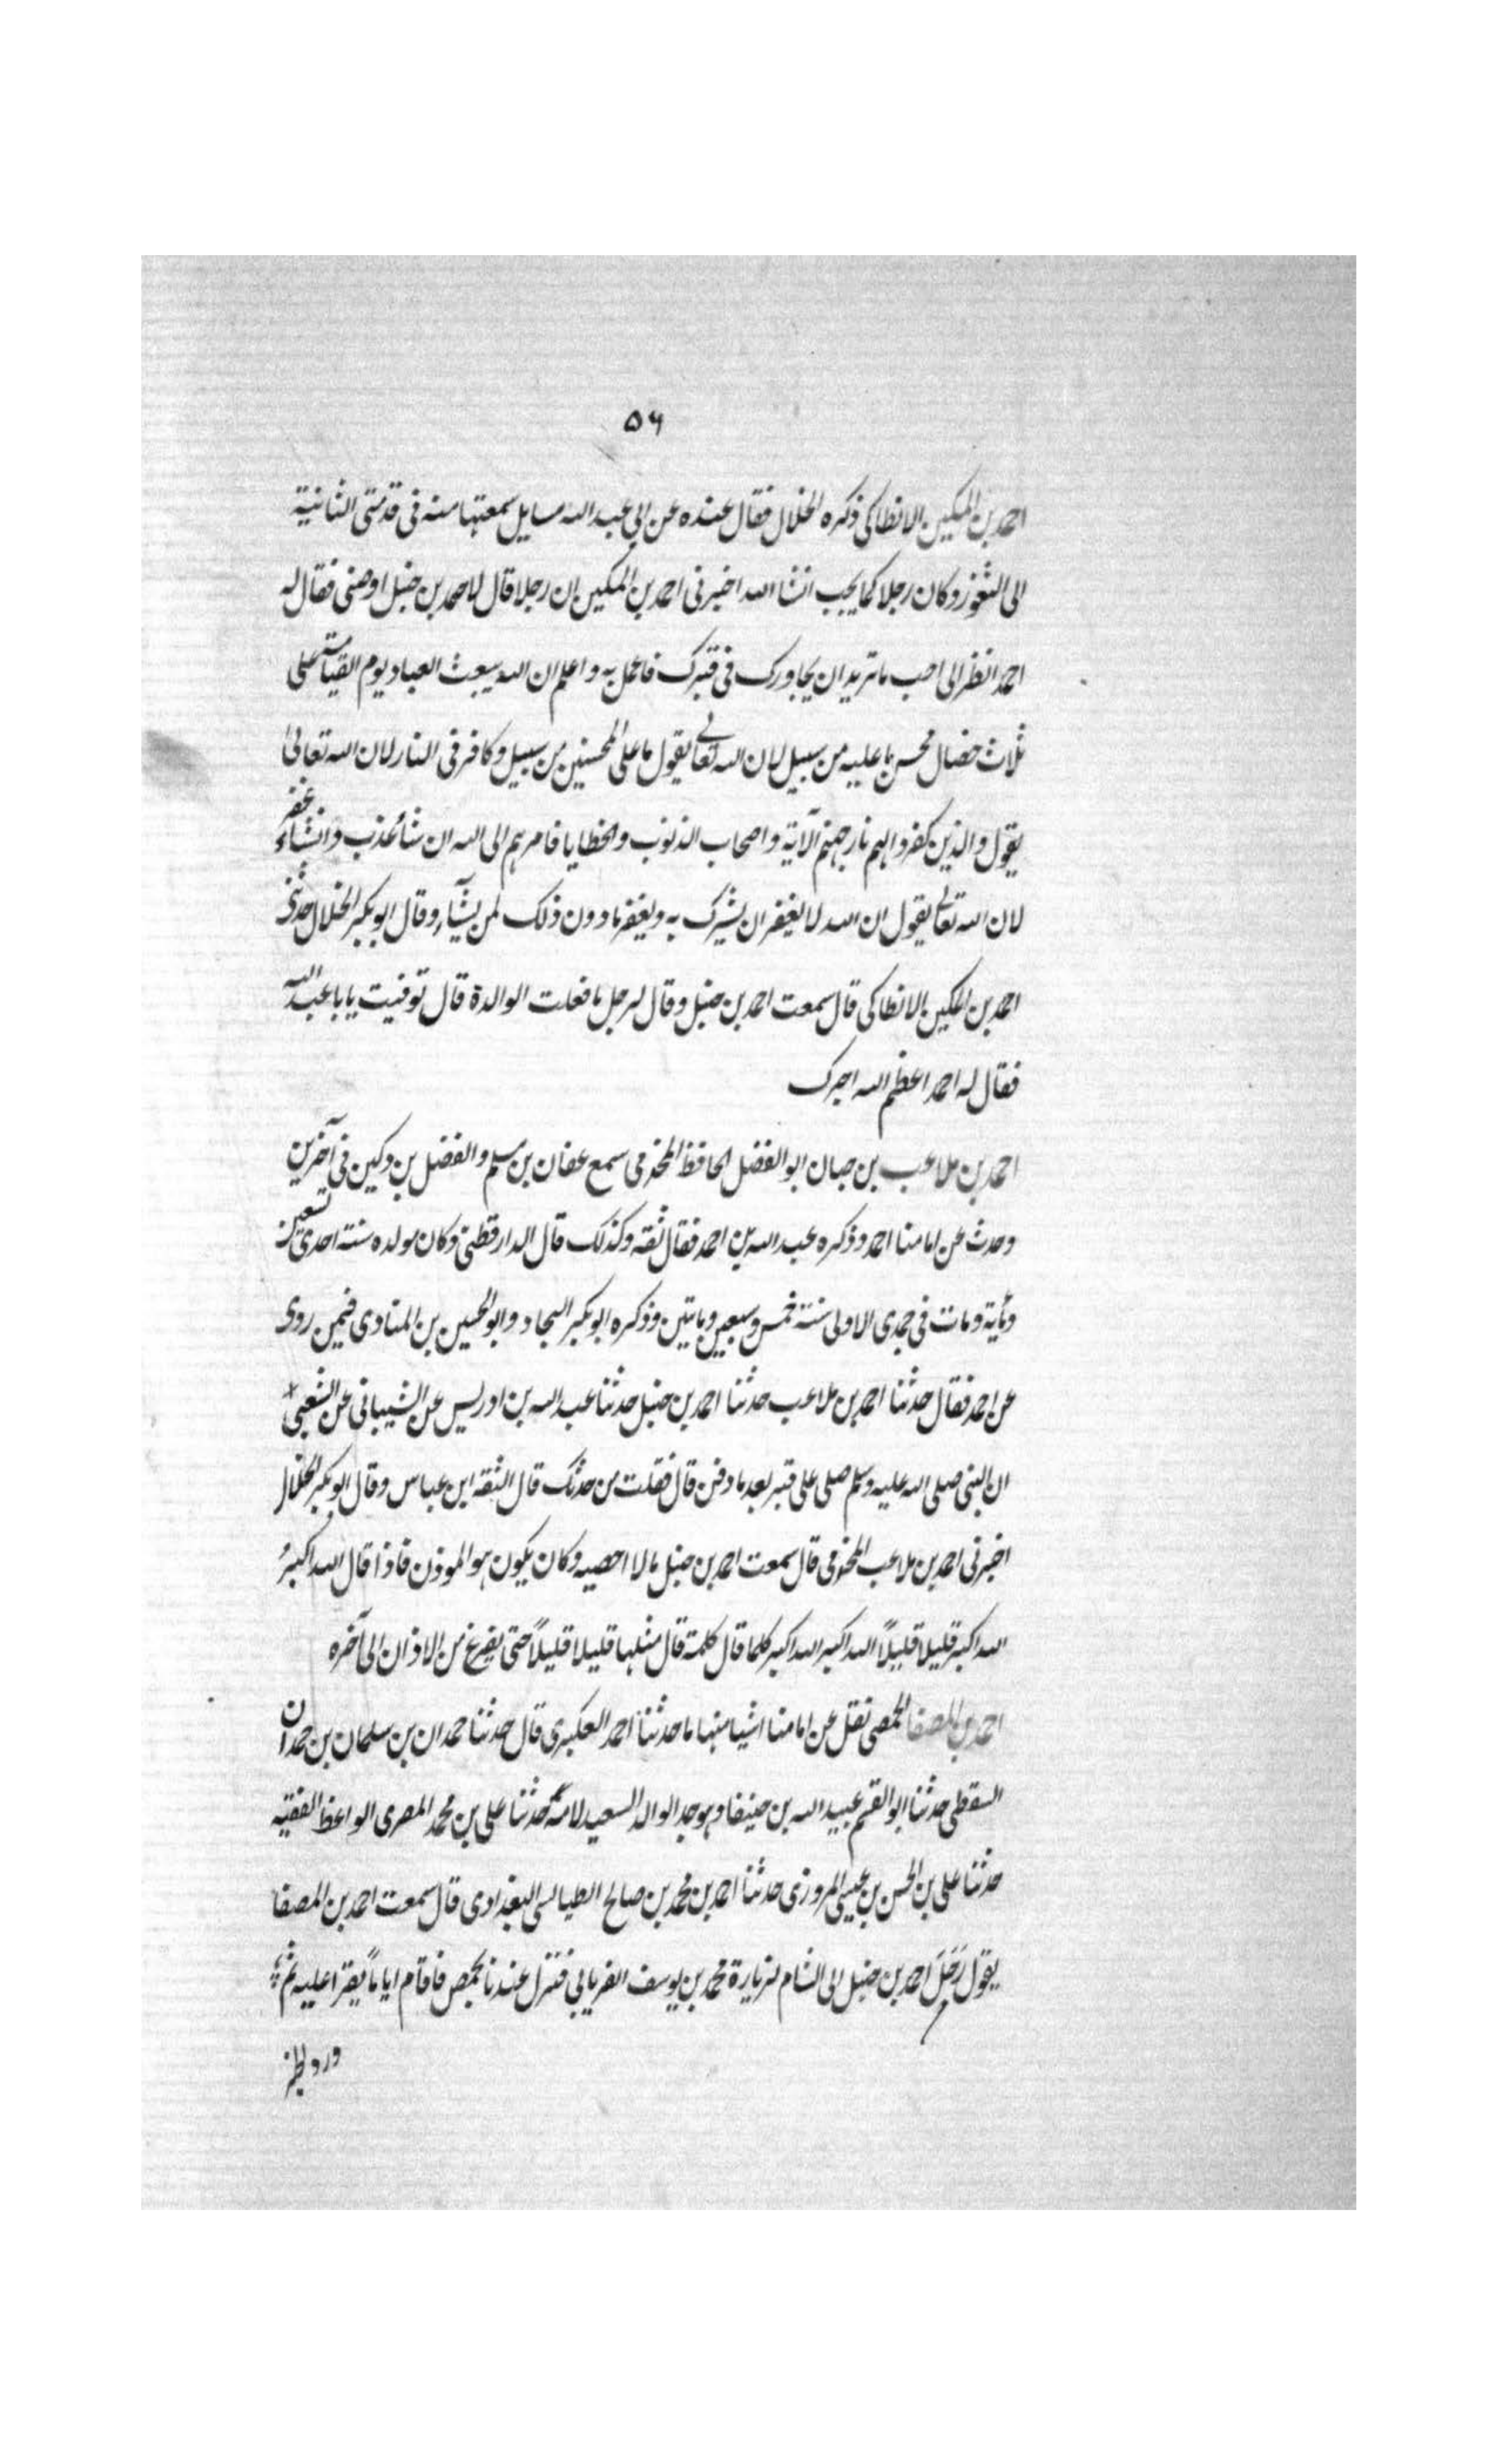 ۵۶
احمد بن المكين الانطاكى ذكره الخلال فقال عنده عن ابى عبد الله مسايل سمعتها منه فى قدمتى الثانية
الى الثغور وكان رجلا كما يحب انشا الله اخبرنى احمد بن المكين ان رجلا قال لاحمد بن حنبل اوصنى فقال له
احمد انظر الى احب ما تريد ان يجاورك فى قبرك فاعمل به واعلم ان الله يبعث العباد يوم القيامة على
ثلاث خصال محسن ما عليه من سبيل لان الله تعالى يقول ما على المحسنين من سبيل وكافر فى النار لان الله تعالى
يقول والذين كفروا لهم نار جهنم الآية واصحاب الذنوب والخطايا فامرهم الى الله ان شاء عذب وانشاء غفر
لان الله تعالى يقول ان الله لا يغفر ان يشرك به ويغفر ما دون ذلك لمن يشآء وقال ابو بكر الخلال حدثنى
احمد بن المكين الانطاكى قال سمعت احمد بن حنبل وقال لرجل ما فعلت الوالدة قال توفيت يابا عبد الله
فقال له احمد اعظم الله اجرك
احمد بن ملاعب بن حبان ابو الفضل الحافظ المخرمى سمع عفان بن مسلم والفضل بن دكين فى آخرين
وحدث عن امامنا احمد وذكره عبد الله بن احمد فقال ثقة وكذلك قال الدارقطنى وكان مولده سنة احدى تسعين
ومأية ومات فى جمدى الاولى سنة خمس وسبعين ومايتين وذكره ابو بكر النجاد وابو الحسين بن المنادى فيمن روى
عن احمد فقال حدثنا احمد بن ملاعب حدثنا احمد بن حنبل حدثنا عبد الله بن ادريس عن الشيبانى عن الشعبى
ان النبى صلى الله عليه وسلم صلى على قبر بعد ما دفن قال فقلت من حدثك قال الثقة ابن عباس وقال ابو بكر الخلال
اخبرنى احمد بن ملاعب المخرمى قال سمعت احمد بن حنبل مالا احصيه وكان يكون هو الموذن فاذا قال الله اكبر
الله اكبر قليلا قليلاً الله اكبر الله اكبر كلما قال كلمة قال مثلها قليلا قليلاً حتى يفرغ من الاذان الى آخره
احمد بن المصفا الحمصى نقل عن امامنا اشيا منها ما حدثنا احمد العكبرى قال حدثنا حمدان بن سلمان بن حمدان
السقطى حدثنا ابو القسم عبيد الله بن حنيفا وهو جد الوالد السعيد لامه حدثنا على بن محمد المصرى الواعظ الفقيه
حدثنا على بن الحسن بن عيسى المروزى حدثنا احمد بن محمد بن صالح الطيالسى البغدادى قال سمعت احمد بن المصفا
يقول رَحَلَ احمد بن حنبل الى الشام لزيارة محمد بن يوسف الفريابى فنزل عندنا بحمص فاقام اياماً يقرا عليه ثم